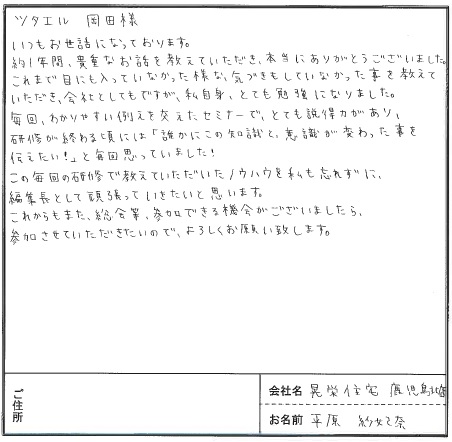 ツタエル 岡田様
いつもお世話になっております。
約1年間、貴重なお話を教えていただき、本当にありがとうございました。
これまで目にも入っていなかった様な、気づきもしていなかった事を教えて
いただき、会社としてもですが、私自身、とても勉強になりました。
毎回、わかりやすい例えを交えたセミナーで、とても説得力があり、
研修が終わる頃には「誰かにこの知識と、意識が変わった事を
伝えたい!」と毎回思っていました!
この毎回の研修で教えていただいたノウハウを私も忘れずに、
編集長として頑張っていきたいと思います。
これからもまた、総会等、参加できる機会がございましたら、
参加させていただきたいので、よろしくお願い致します。
ご住所
会社名 晃栄住宅 鹿児島
お名前 平原